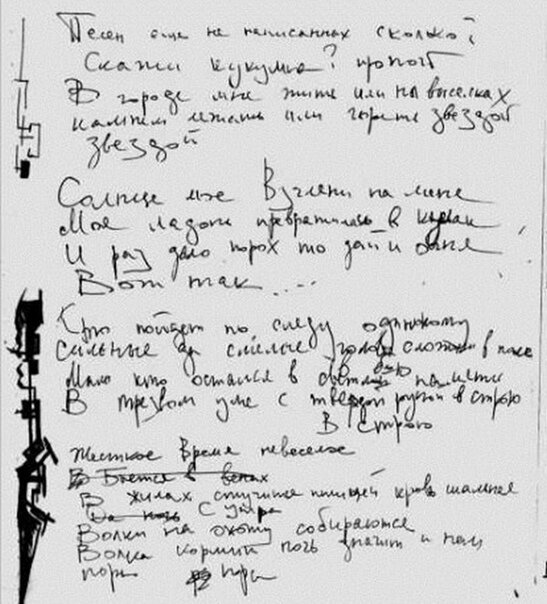 Песен еще не написанных сколько?
Скажи кукушка? пропой
В городе мне жить или на выселках
камнем лежать или гореть звездой
звездой
Солнце мое Взгляни на меня
Моя ладонь превратилась в кулак
И раз дало порох то дай и огня
Вот так....
Кто пойдет по следу одинокому
Сильные да смелые головы сложили в поле
Мало кто остался в светлой памяти
В трезвом уме с твердой рукой в строю
В строю
Жесткое Время невеселое
В Бьется в венах
В жилах стучит птицей кровь шальная
С утра
Волки на охоту собираются
Волка кормит ночь значит и нам
пора пора